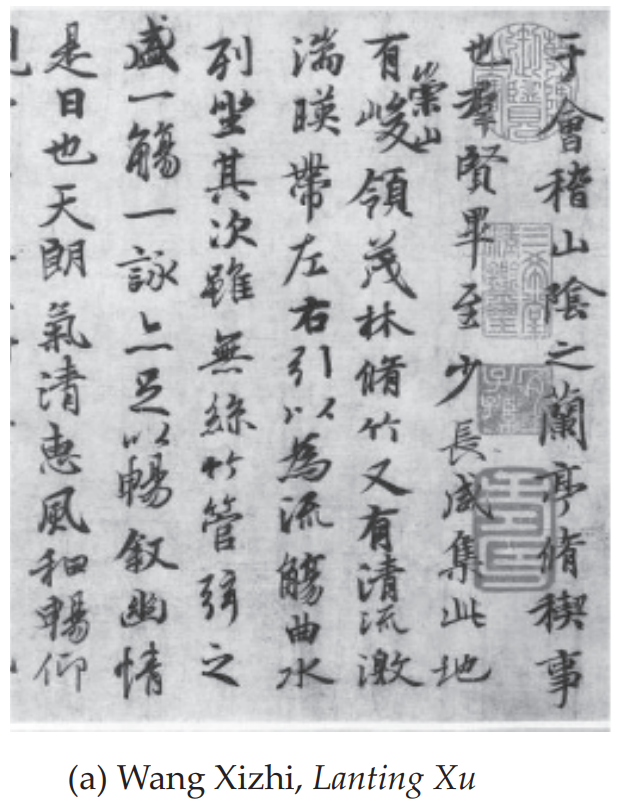 于會稽山陰之蘭亭脩稧事
也羣賢畢至少長咸集此地
有崇山峻領茂林脩竹又有清流激
湍暎帶左右引以為流觴曲水
列坐其次雖無絲竹管弦之
盛一觴一詠亦足以暢叙幽情
是日也天朗氣清惠風和暢仰
(a) Wang Xizhi, Lanting Xu